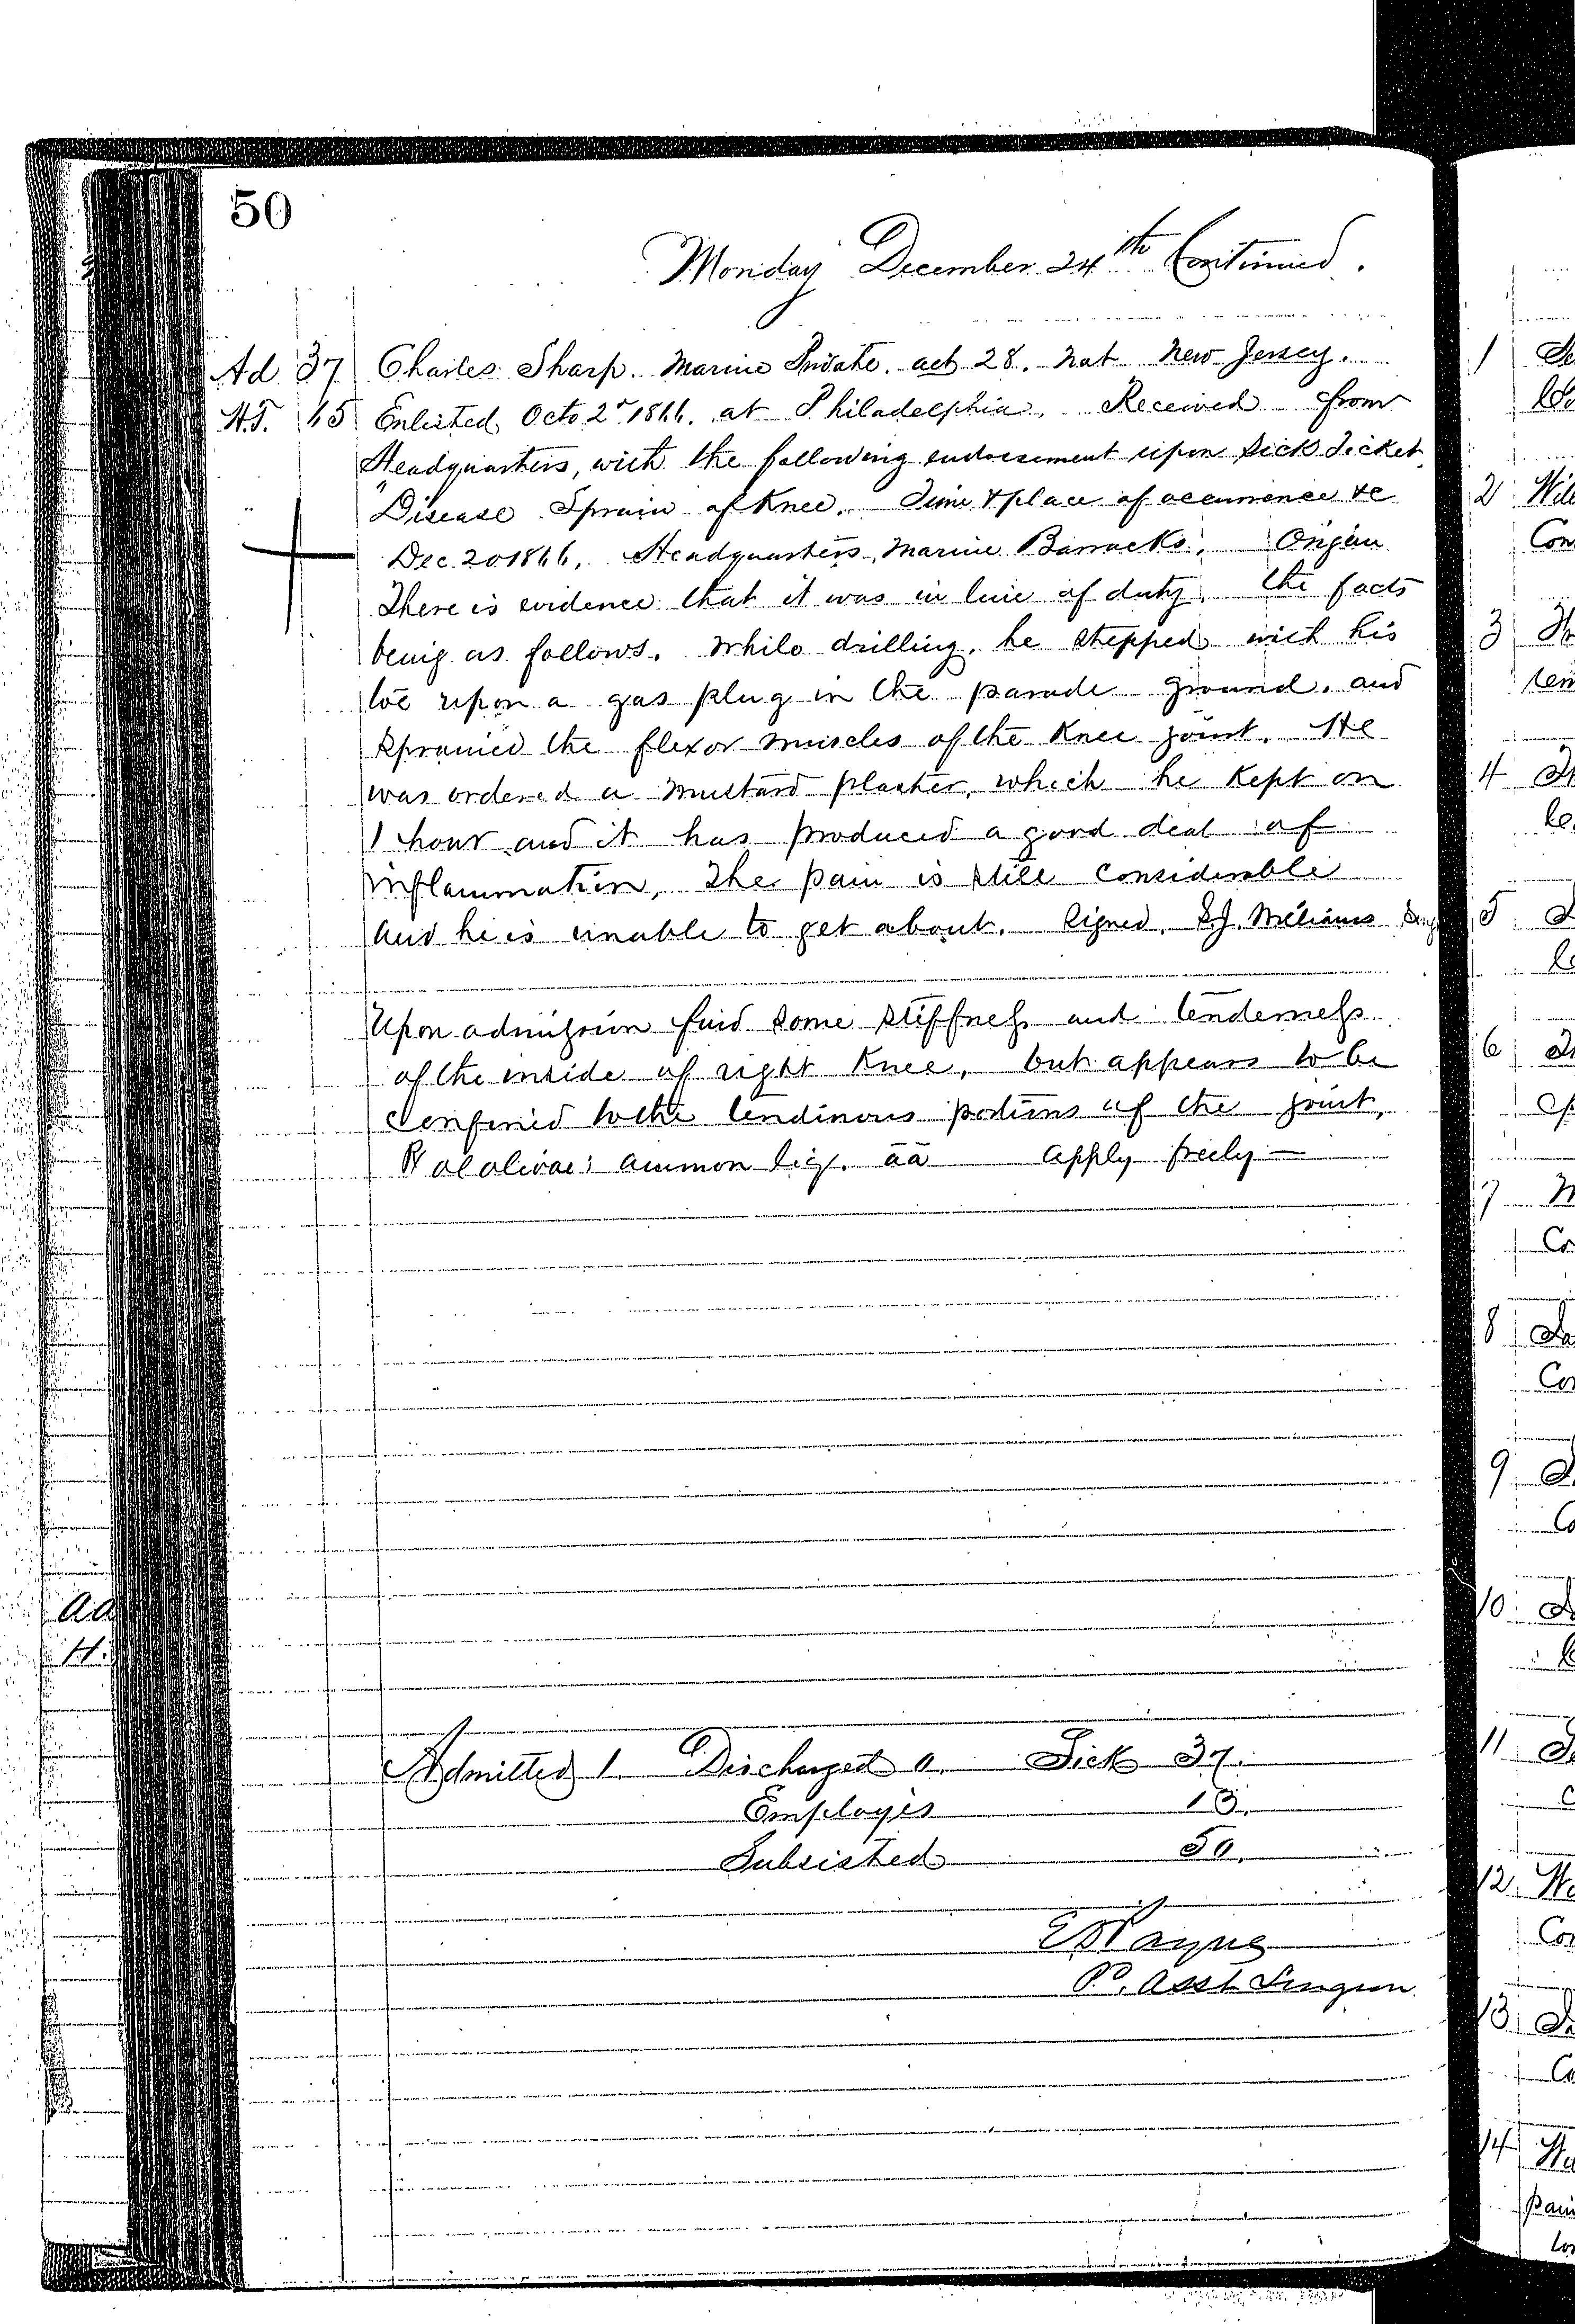 50
Monday December 24th Continued.
Ad 37 Charles Sharp. Marine Private. aet 28. Nat New Jersey.
H.T. 15 Enlisted, Octo 2d 1866. at Philadelphia. Received from
Headquarters, with the following endorsement upon Sick Ticket,
"Disease Sprain of Knee. Time & place of occurrence &c
Dec 20 1866, Headquarters, Marine Barracks, Origin
There is evidence that it was in line of duty, the facts
being as follows. While drilling, he stepped with his
toe upon a gas plug in the parade ground, and
sprained the flexor muscles of the Knee joint. He
was ordered a mustard plaster, which he Kept on
1 hour and it has produced a good deal of
inflammation, The pain is still considerable
and he is unable to get about. Signed, Williams Surg
Upon admission find some stiffness and tenderness
of the inside of right Knee, but appears to be
confined to the tendinous portions of the joint,
℞ ol olivae: ammon liq. āā apply freely —
Admitted 1. Discharged 0. Sick 37.
Employés 13.
Subsisted 50.
Payne
Pd. Asst Surgeon
aa
H.
1
2 Wil
Con
3
4
5
6
7
Co
8
Co
9
Co
10
11
12
Con
13
Co
14
pain